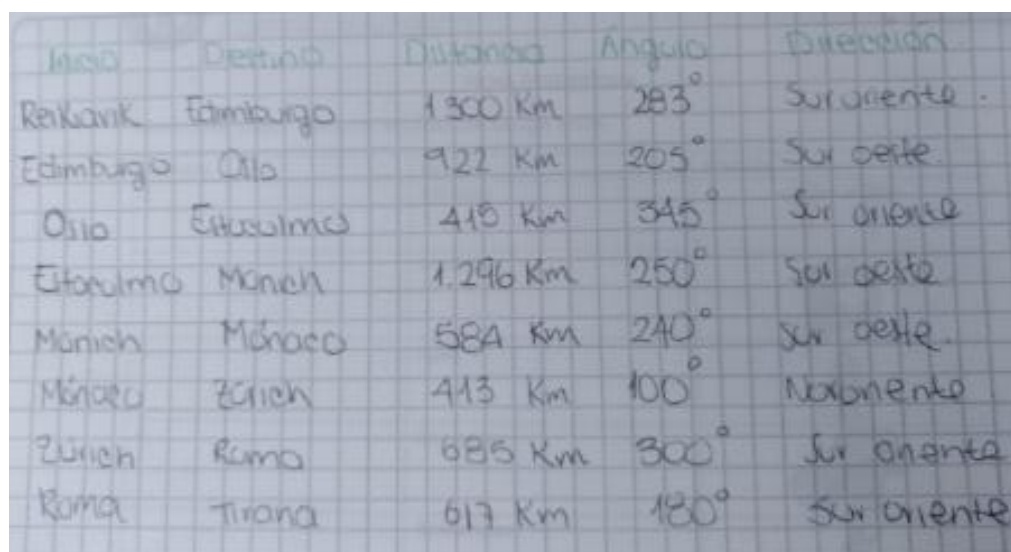 Inicio Destino Distancia Ángulo Dirección
Reikiavik Edimburgo 1300 Km 283° Sur oriente.
Edimburgo Oslo 922 Km 205° Sur oeste.
Oslo Estocolmo 415 Km 345° Sur oriente
Estocolmo Múnich 1.296 Km 250° Sur oeste
Múnich Mónaco 584 Km 240° Sur oeste.
Mónaco Zúrich 413 Km 100° Nororiente
Zúrich Roma 685 Km 300° Sur oriente
Roma Tirana 617 Km 180° Sur oriente